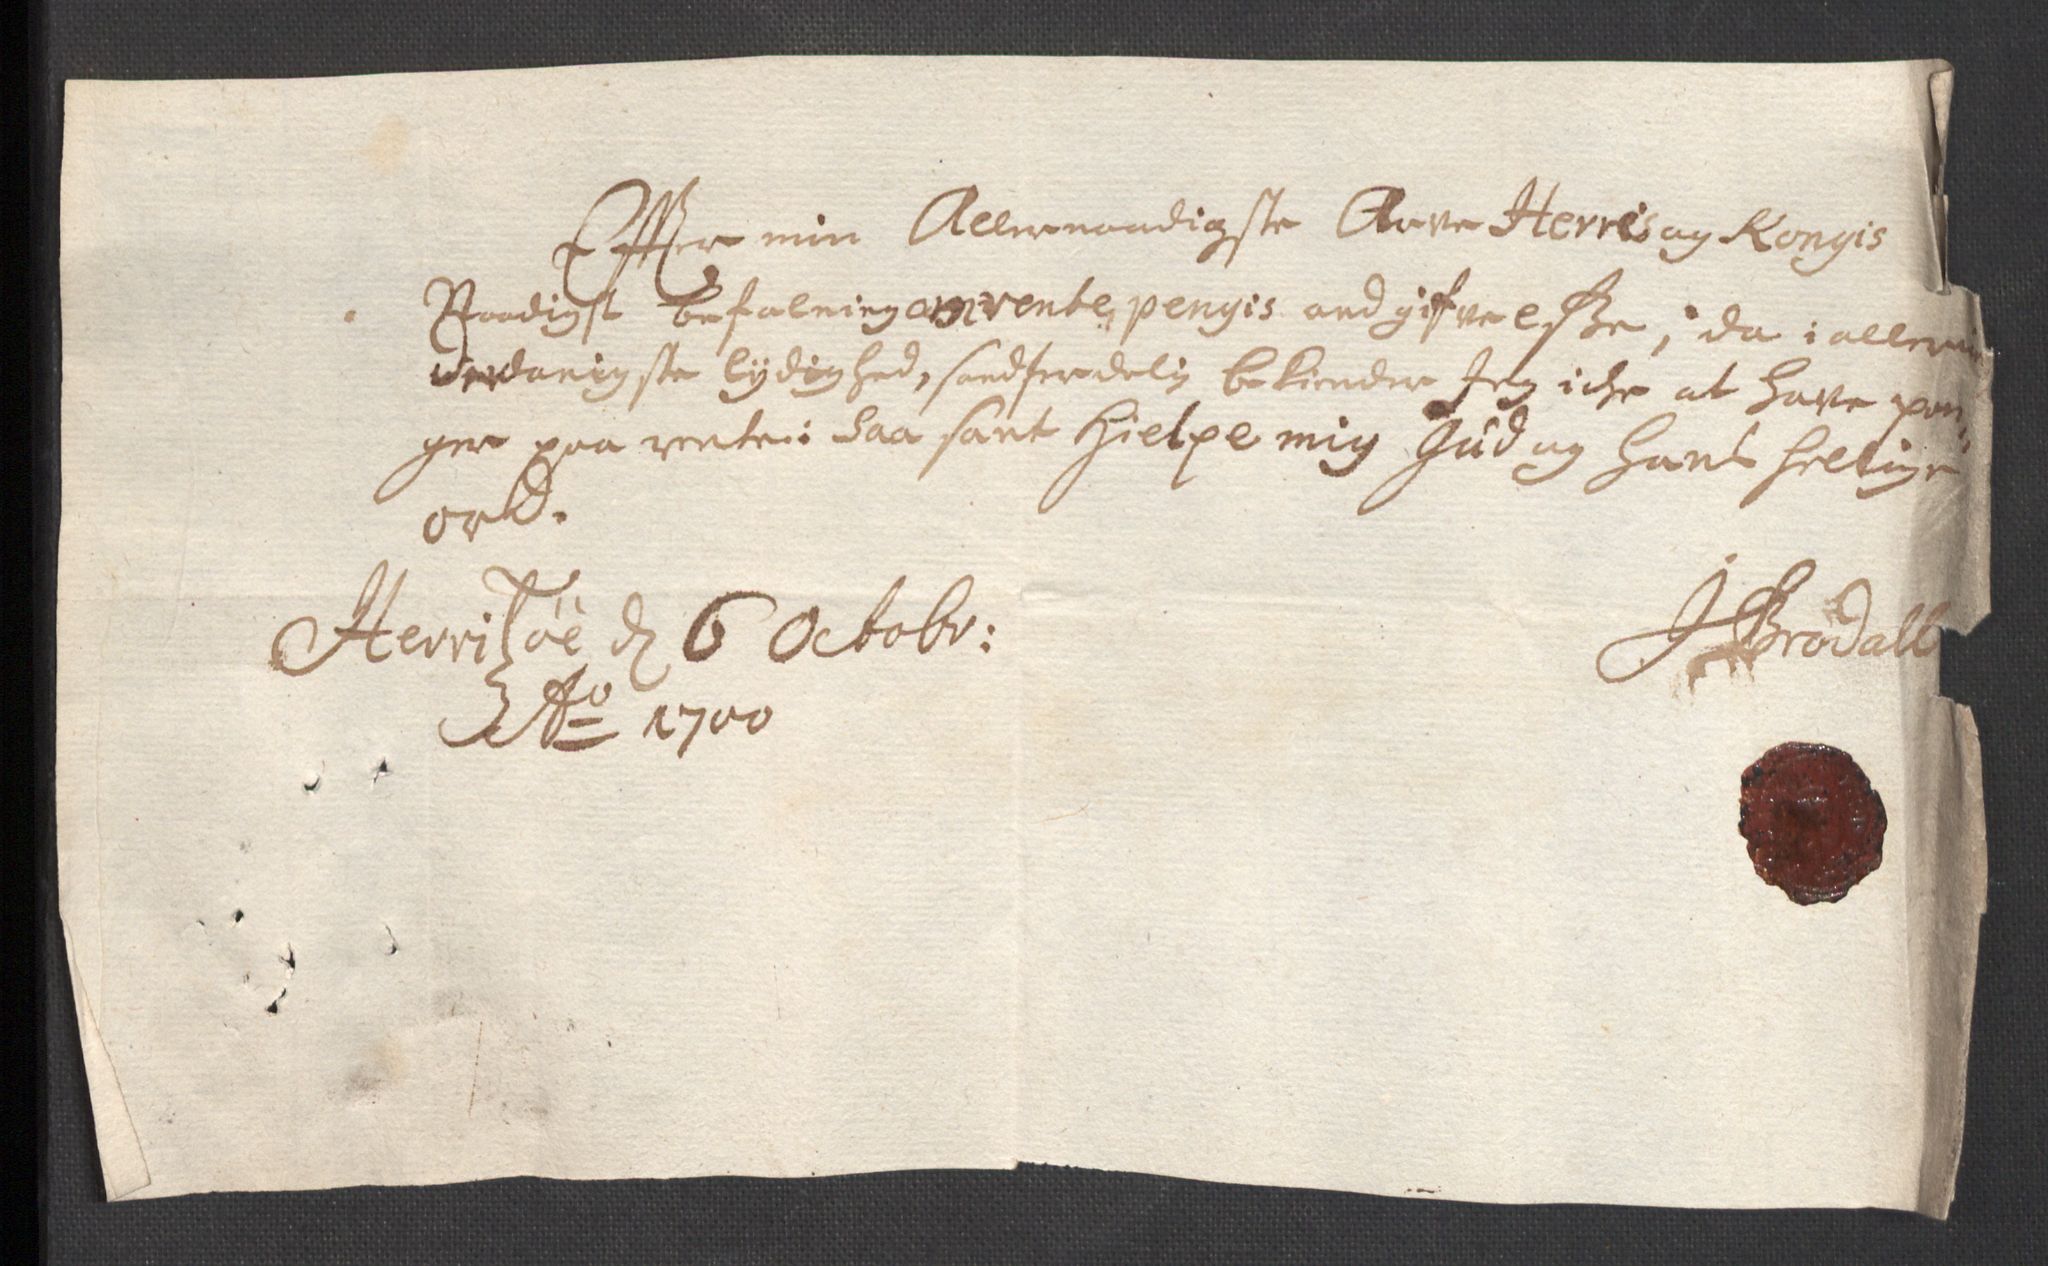 Effter min Allernaadigste Arve Herris og Kongis
Naadigst befalning om rente pengis andgifvelsse, da i allerun
derdanigste lydighed, sandferdelig bekiender Jeg iche at have pen-
ger paa rente: Saa sant hielpe mig Gud og hans hellige
ord.
Herrisöe d 6 Octobr:
Ao 1700
J Brodall